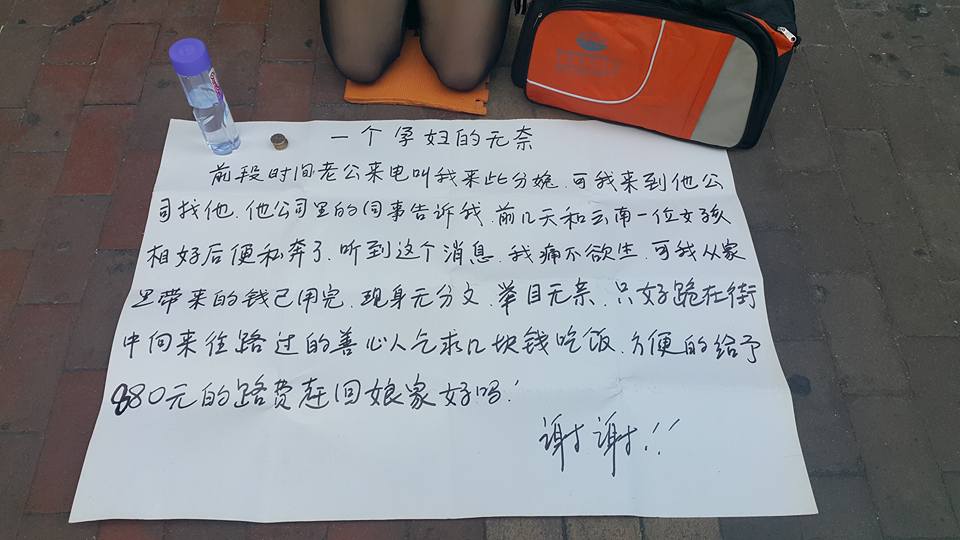 一个孕妇的无奈
前段时间老公来电叫我来此分娩.可我来到他公
司找他.他公司里的同事告诉我.前几天和云南一位女孩
相好后便私奔了.听到这个消息.我痛不欲生.可我从家
里带来的钱已用完.现身无分文.举目无亲.只好跪在街
中向来往路过的善心人乞求几块钱吃饭.方便的给予
880元的路费赶回娘家好吗!
谢谢!!